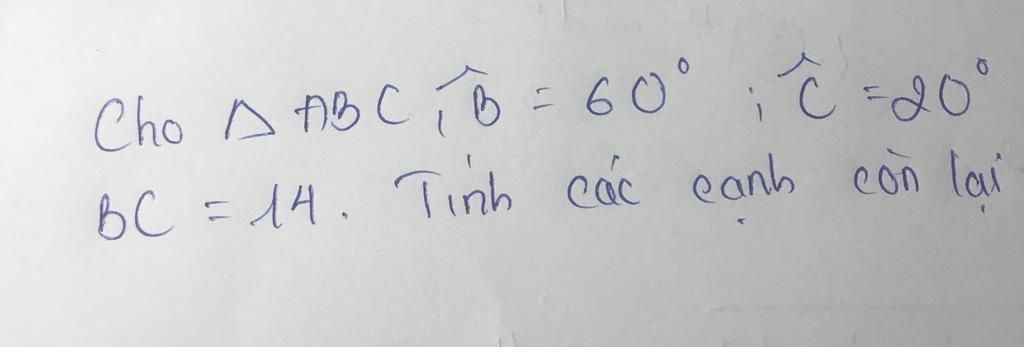 Cho Δ ABC, B̂ = 60° ; Ĉ = 20°
BC = 14. Tính các cạnh còn lại